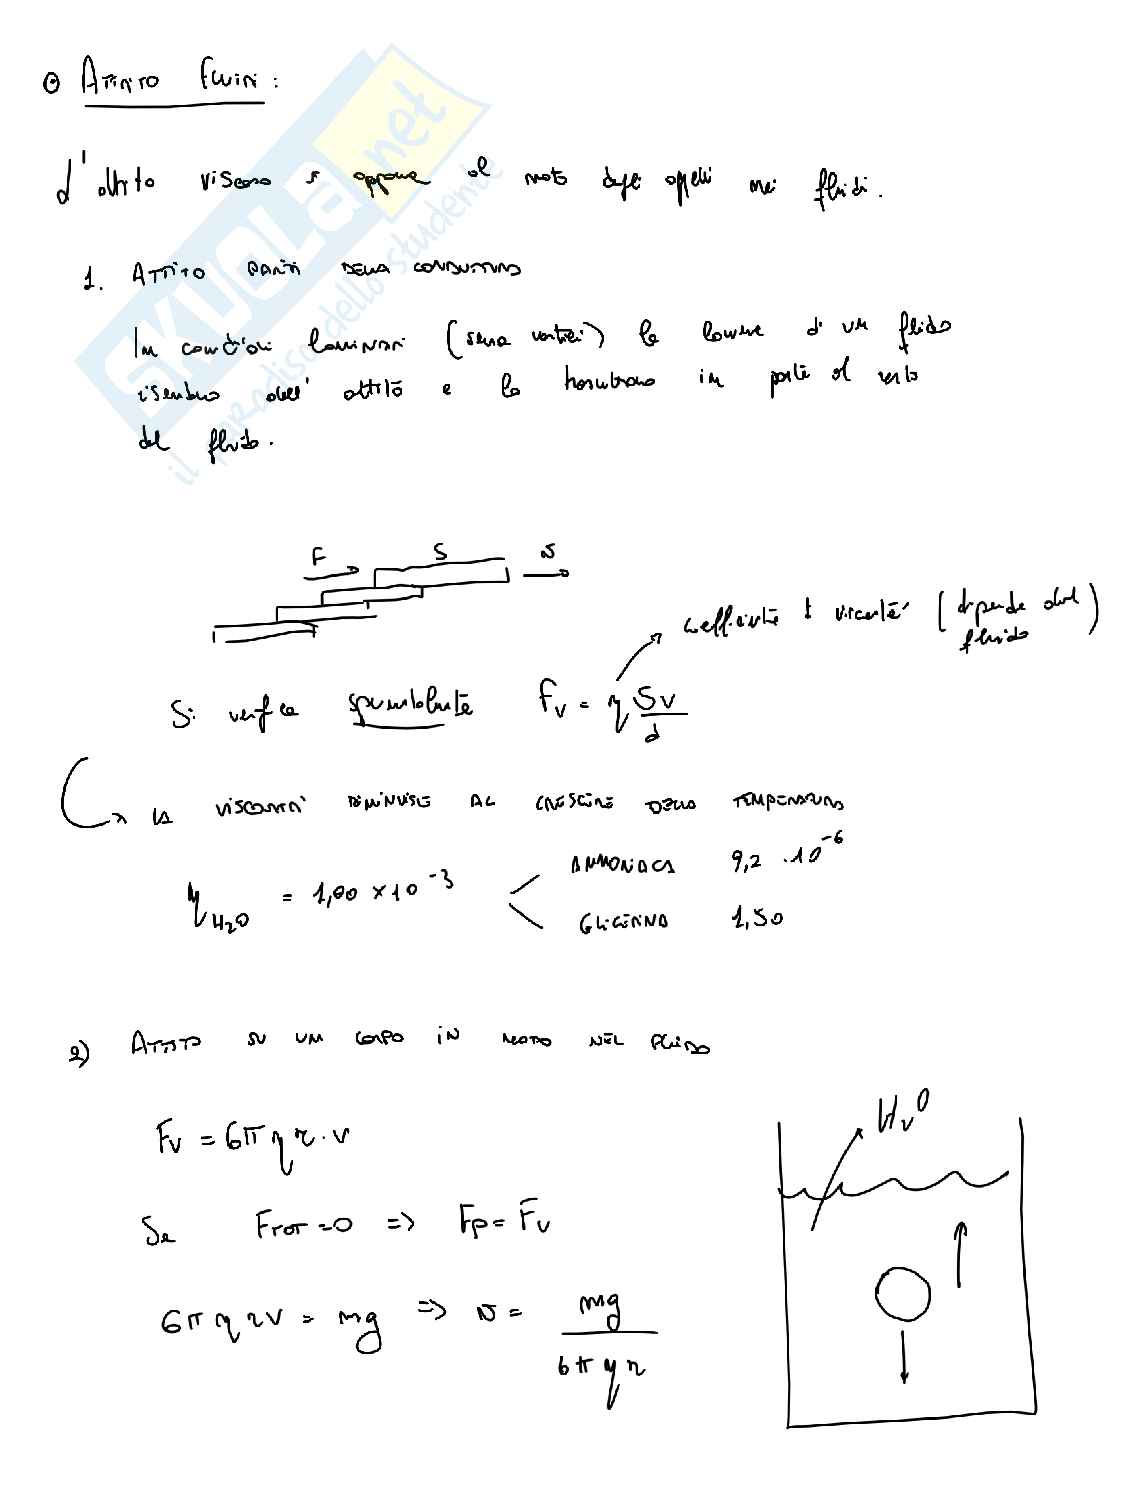 ATTRITO FLUIDI:
L'attrito viscoso si oppone al moto degli oggetti nei fluidi.
1. ATTRITO PARETI DELLA CONDUTTURA
In condizioni laminari (senza vortici) le lamine di un fluido
risentono dell' attrito e lo trasmettono in parte al resto
del fluido.
F S v
coefficiente di viscosità (dipende dal fluido)
Si verifica sperimentalmente Fv = η Sv/d
LA VISCOSITÀ DIMINUISCE AL CRESCERE DELLA TEMPERATURA
AMMONIACA 9,2 · 10^-6
η H2O = 1,00 × 10^-3
GLICERINA 1,50
2) ATTRITO SU UN CORPO IN MOTO NEL FLUIDO
H2O
Fv = 6π η r · v
Se FTOT = 0 => Fp = Fv
6π η r v = mg => v = mg / 6π η r
SKUOLA.net
il paradiso dello studente